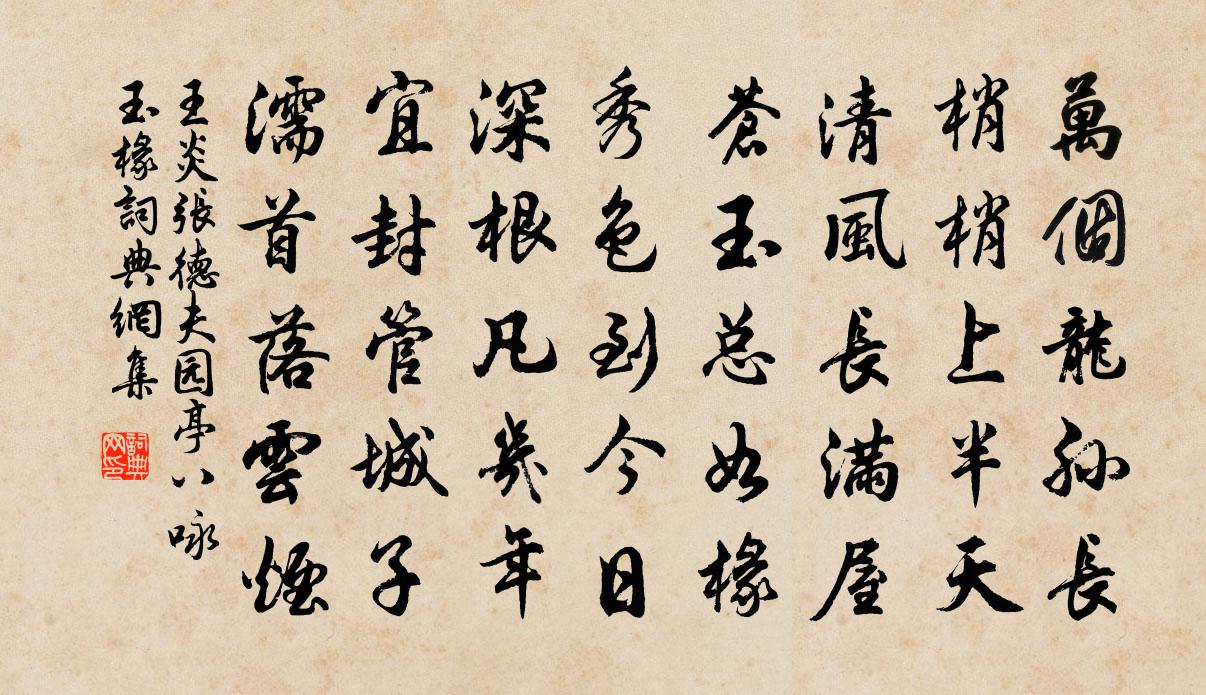 萬個龍孙長
梢梢上半天
清風長满屋
蒼玉总如椽
秀色到今日
深根凡幾年
宜封管城子
濡首落雲煙
王炎張德夫园亭八咏
玉椽詞典網集
詞典网印